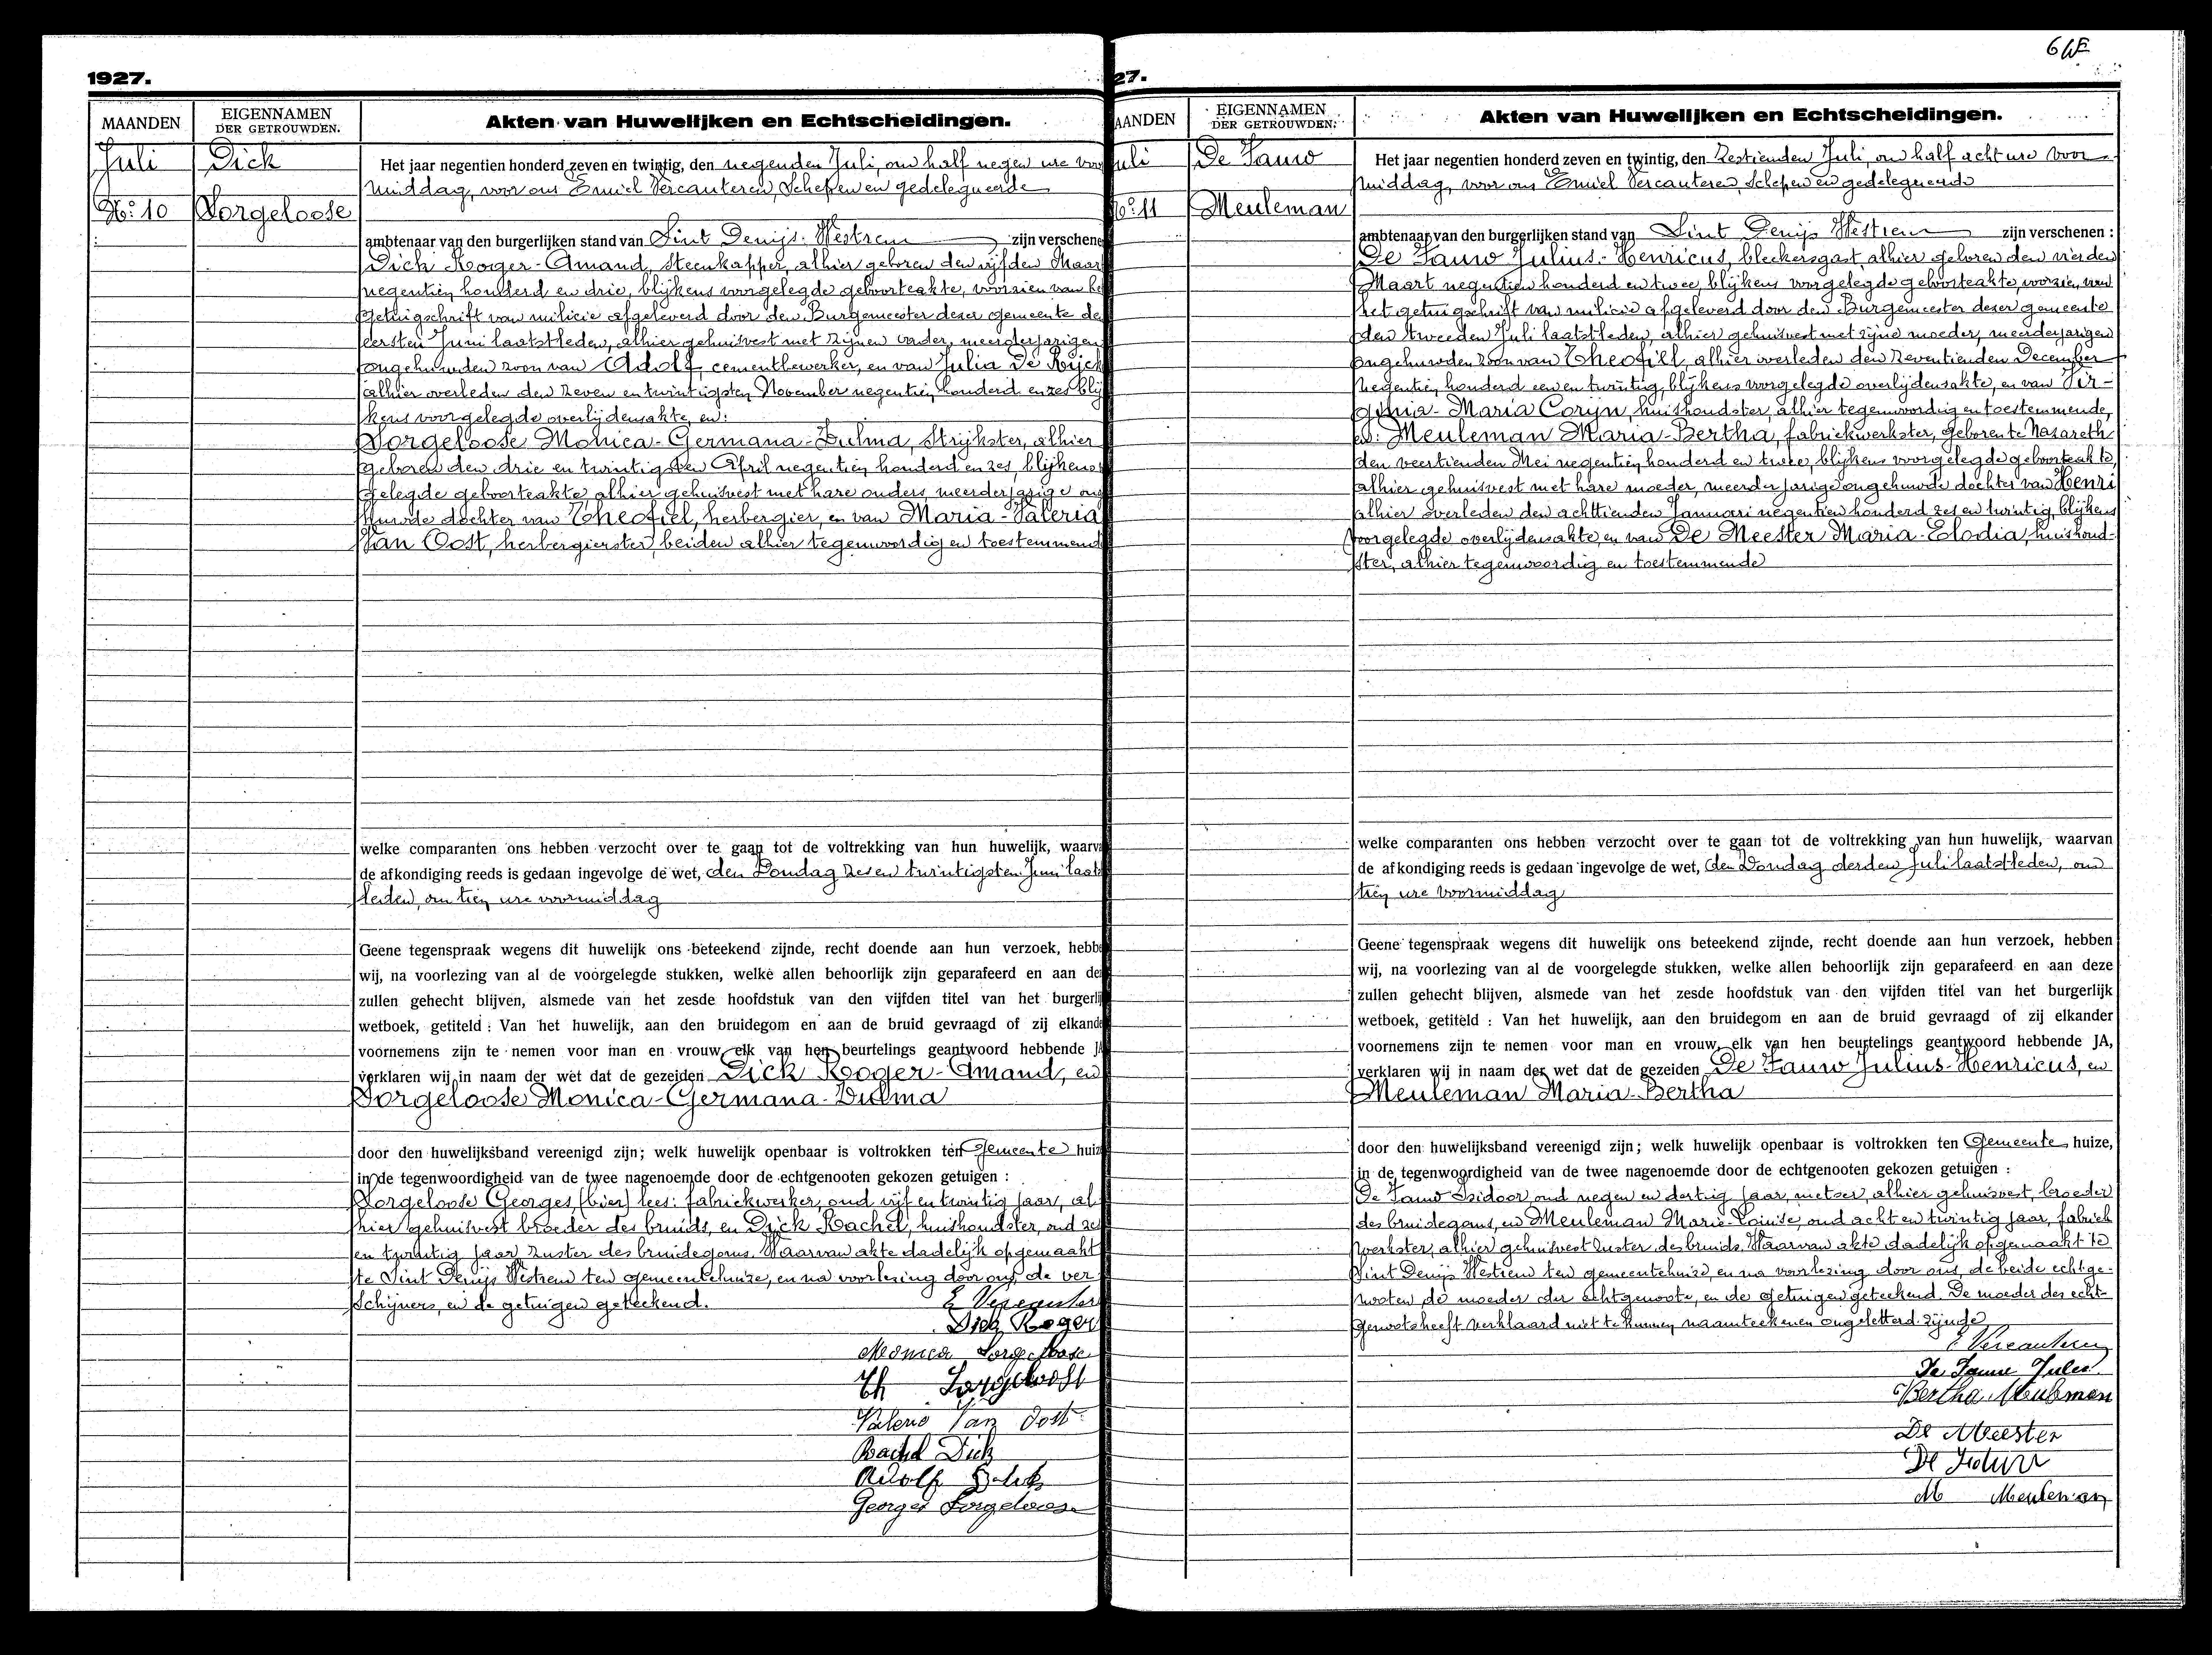 1927.
MAANDEN
EIGENNAMEN
DER GETROUWDEN.
Akten van Huwelijken en Echtscheidingen.
Juli
Dick
No. 10
Lorgeloose
Het jaar negentien honderd zeven en twintig, den negenden Juli, om half negen ure voor
middag, voor ons Emiel Vercauteren, Schepen en gedelegueerde
ambtenaar van den burgerlijken stand van Sint Denijs Westrem zijn verschene
Dick Roger-Amand, steenkapper, alhier geboren den vijfden Maar
negentien honderd en drie, blijkens voorgelegde geboorteakte, voorzien van he
getuigschrift van milicie afgeleverd door den Burgemeester dezer gemeente de
eersten Juni laatstleden, alhier gehuisvest met zijnen vader, meerderjarigen
ongehuwden zoon van Adolf, cementbewerker, en van Julia De Rijck
alhier overleden den zeven en twintigsten November negentien honderd en zes blij
kens voorgelegde overlijdensakte, en:
Lorgeloose Monica-Germana-Zulma, strijkster, alhier
geboren den drie en twintigsten April negentien honderd en zes, blijkens
gelegde geboorteakte alhier gehuisvest met hare ouders, meerderjarige ong
huwde dochter van Theofiel, herbergier, en van Maria-Valeria
Van Oost, herbergierster, beiden alhier tegenwoordig en toestemmend
welke comparanten ons hebben verzocht over te gaan tot de voltrekking van hun huwelijk, waarva
de afkondiging reeds is gedaan ingevolge de wet, den Zondag zes en twintigsten Juni laatst
leden, om tien ure voormiddag
Geene tegenspraak wegens dit huwelijk ons beteekend zijnde, recht doende aan hun verzoek, hebbe
wij, na voorlezing van al de voorgelegde stukken, welke allen behoorlijk zijn geparafeerd en aan de
zullen gehecht blijven, alsmede van het zesde hoofdstuk van den vijfden titel van het burgerlij
wetboek, getiteld : Van het huwelijk, aan den bruidegom en aan de bruid gevraagd of zij elkande
voornemens zijn te nemen voor man en vrouw, elk van hen beurtelings geantwoord hebbende JA
verklaren wij in naam der wet dat de gezeiden Dick Roger-Amand, en
Lorgeloose Monica-Germana-Zulma
door den huwelijksband vereenigd zijn; welk huwelijk openbaar is voltrokken ten Gemeente huize
in de tegenwoordigheid van de twee nagenoemde door de echtgenooten gekozen getuigen :
Lorgeloose Georges, (bier) lees: fabriekwerker, oud vijf en twintig jaar, al
hier gehuisvest broeder des bruids, en Dick Rachel, huishoudster, oud zes
en twintig jaar, zuster des bruidegoms. Waarvan akte dadelijk opgemaakt
te Sint Denijs Westrem ten gemeentehuize, en na voorlezing door ons, de ver
schijners, en de getuigen geteekend.
E Vercauteren
Dick Roger
Monica Lorgeloose
Th Lorgeloose
Valerie Van Oost
Rachel Dick
Adolf Dick
Georges Lorgeloose
27.
AANDEN
EIGENNAMEN
DER GETROUWDEN.
Akten van Huwelijken en Echtscheidingen.
uli
De Fauw
No. 11
Meuleman
Het jaar negentien honderd zeven en twintig, den Zestienden Juli, om half acht ure voor
middag, voor ons Emiel Vercauteren, Schepen en gedelegueerde
ambtenaar van den burgerlijken stand van Sint Denijs Westrem zijn verschenen :
De Fauw Julius-Henricus, bleekersgast, alhier geboren den vierden
Maart negentien honderd en twee, blijkens voorgelegde geboorteakte voorzien van
het getuigschrift van milicie afgeleverd door den Burgemeester dezer gemeente
den tweeden Juli laatstleden, alhier gehuisvest met zijne moeder, meerderjarigen
ongehuwden zoon van Theofiel, alhier overleden den zeventienden December
negentien honderd een en twintig, blijkens voorgelegde overlijdensakte, en van Vir-
ginia-Maria Coryn, huishoudster, alhier tegenwoordig en toestemmende,
en: Meuleman Maria-Bertha, fabriekwerkster, geboren te Nazareth
den veertienden Mei negentien honderd en twee, blijkens voorgelegde geboorteakte,
alhier gehuisvest met hare moeder, meerderjarige ongehuwde dochter van Henri
alhier overleden den achttienden Januari negentien honderd zes en twintig, blijkens
voorgelegde overlijdensakte, en van De Meester Maria-Elodia, huishoud-
ster, alhier tegenwoordig en toestemmende
welke comparanten ons hebben verzocht over te gaan tot de voltrekking van hun huwelijk, waarvan
de afkondiging reeds is gedaan ingevolge de wet, den Zondag derden Juli laatstleden, om
tien ure voormiddag
Geene tegenspraak wegens dit huwelijk ons beteekend zijnde, recht doende aan hun verzoek, hebben
wij, na voorlezing van al de voorgelegde stukken, welke allen behoorlijk zijn geparafeerd en aan deze
zullen gehecht blijven, alsmede van het zesde hoofdstuk van den vijfden titel van het burgerlijk
wetboek, getiteld : Van het huwelijk, aan den bruidegom en aan de bruid gevraagd of zij elkander
voornemens zijn te nemen voor man en vrouw, elk van hen beurtelings geantwoord hebbende JA,
verklaren wij in naam der wet dat de gezeiden De Fauw Julius-Henricus, en
Meuleman Maria-Bertha
door den huwelijksband vereenigd zijn; welk huwelijk openbaar is voltrokken ten Gemeente huize,
in de tegenwoordigheid van de twee nagenoemde door de echtgenooten gekozen getuigen :
De Fauw Isidoor, oud negen en dertig jaar, metser, alhier gehuisvest, broeder
des bruidegoms, en Meuleman Marie-Louise, oud acht en twintig jaar, fabriek
werkster, alhier gehuisvest zuster des bruids. Waarvan akte dadelijk opgemaakt te
Sint Denijs Westrem ten gemeentehuize, en na voorlezing door ons, de beide echtge-
nooten, de moeder der echtgenoote, en de getuigen geteekend. De moeder des echt-
genoots heeft verklaard niet te kunnen naamteekenen ongeletterd zijnde
E Vercauteren
De Fauw Jules
Bertha Meuleman
De Meester
M Meuleman